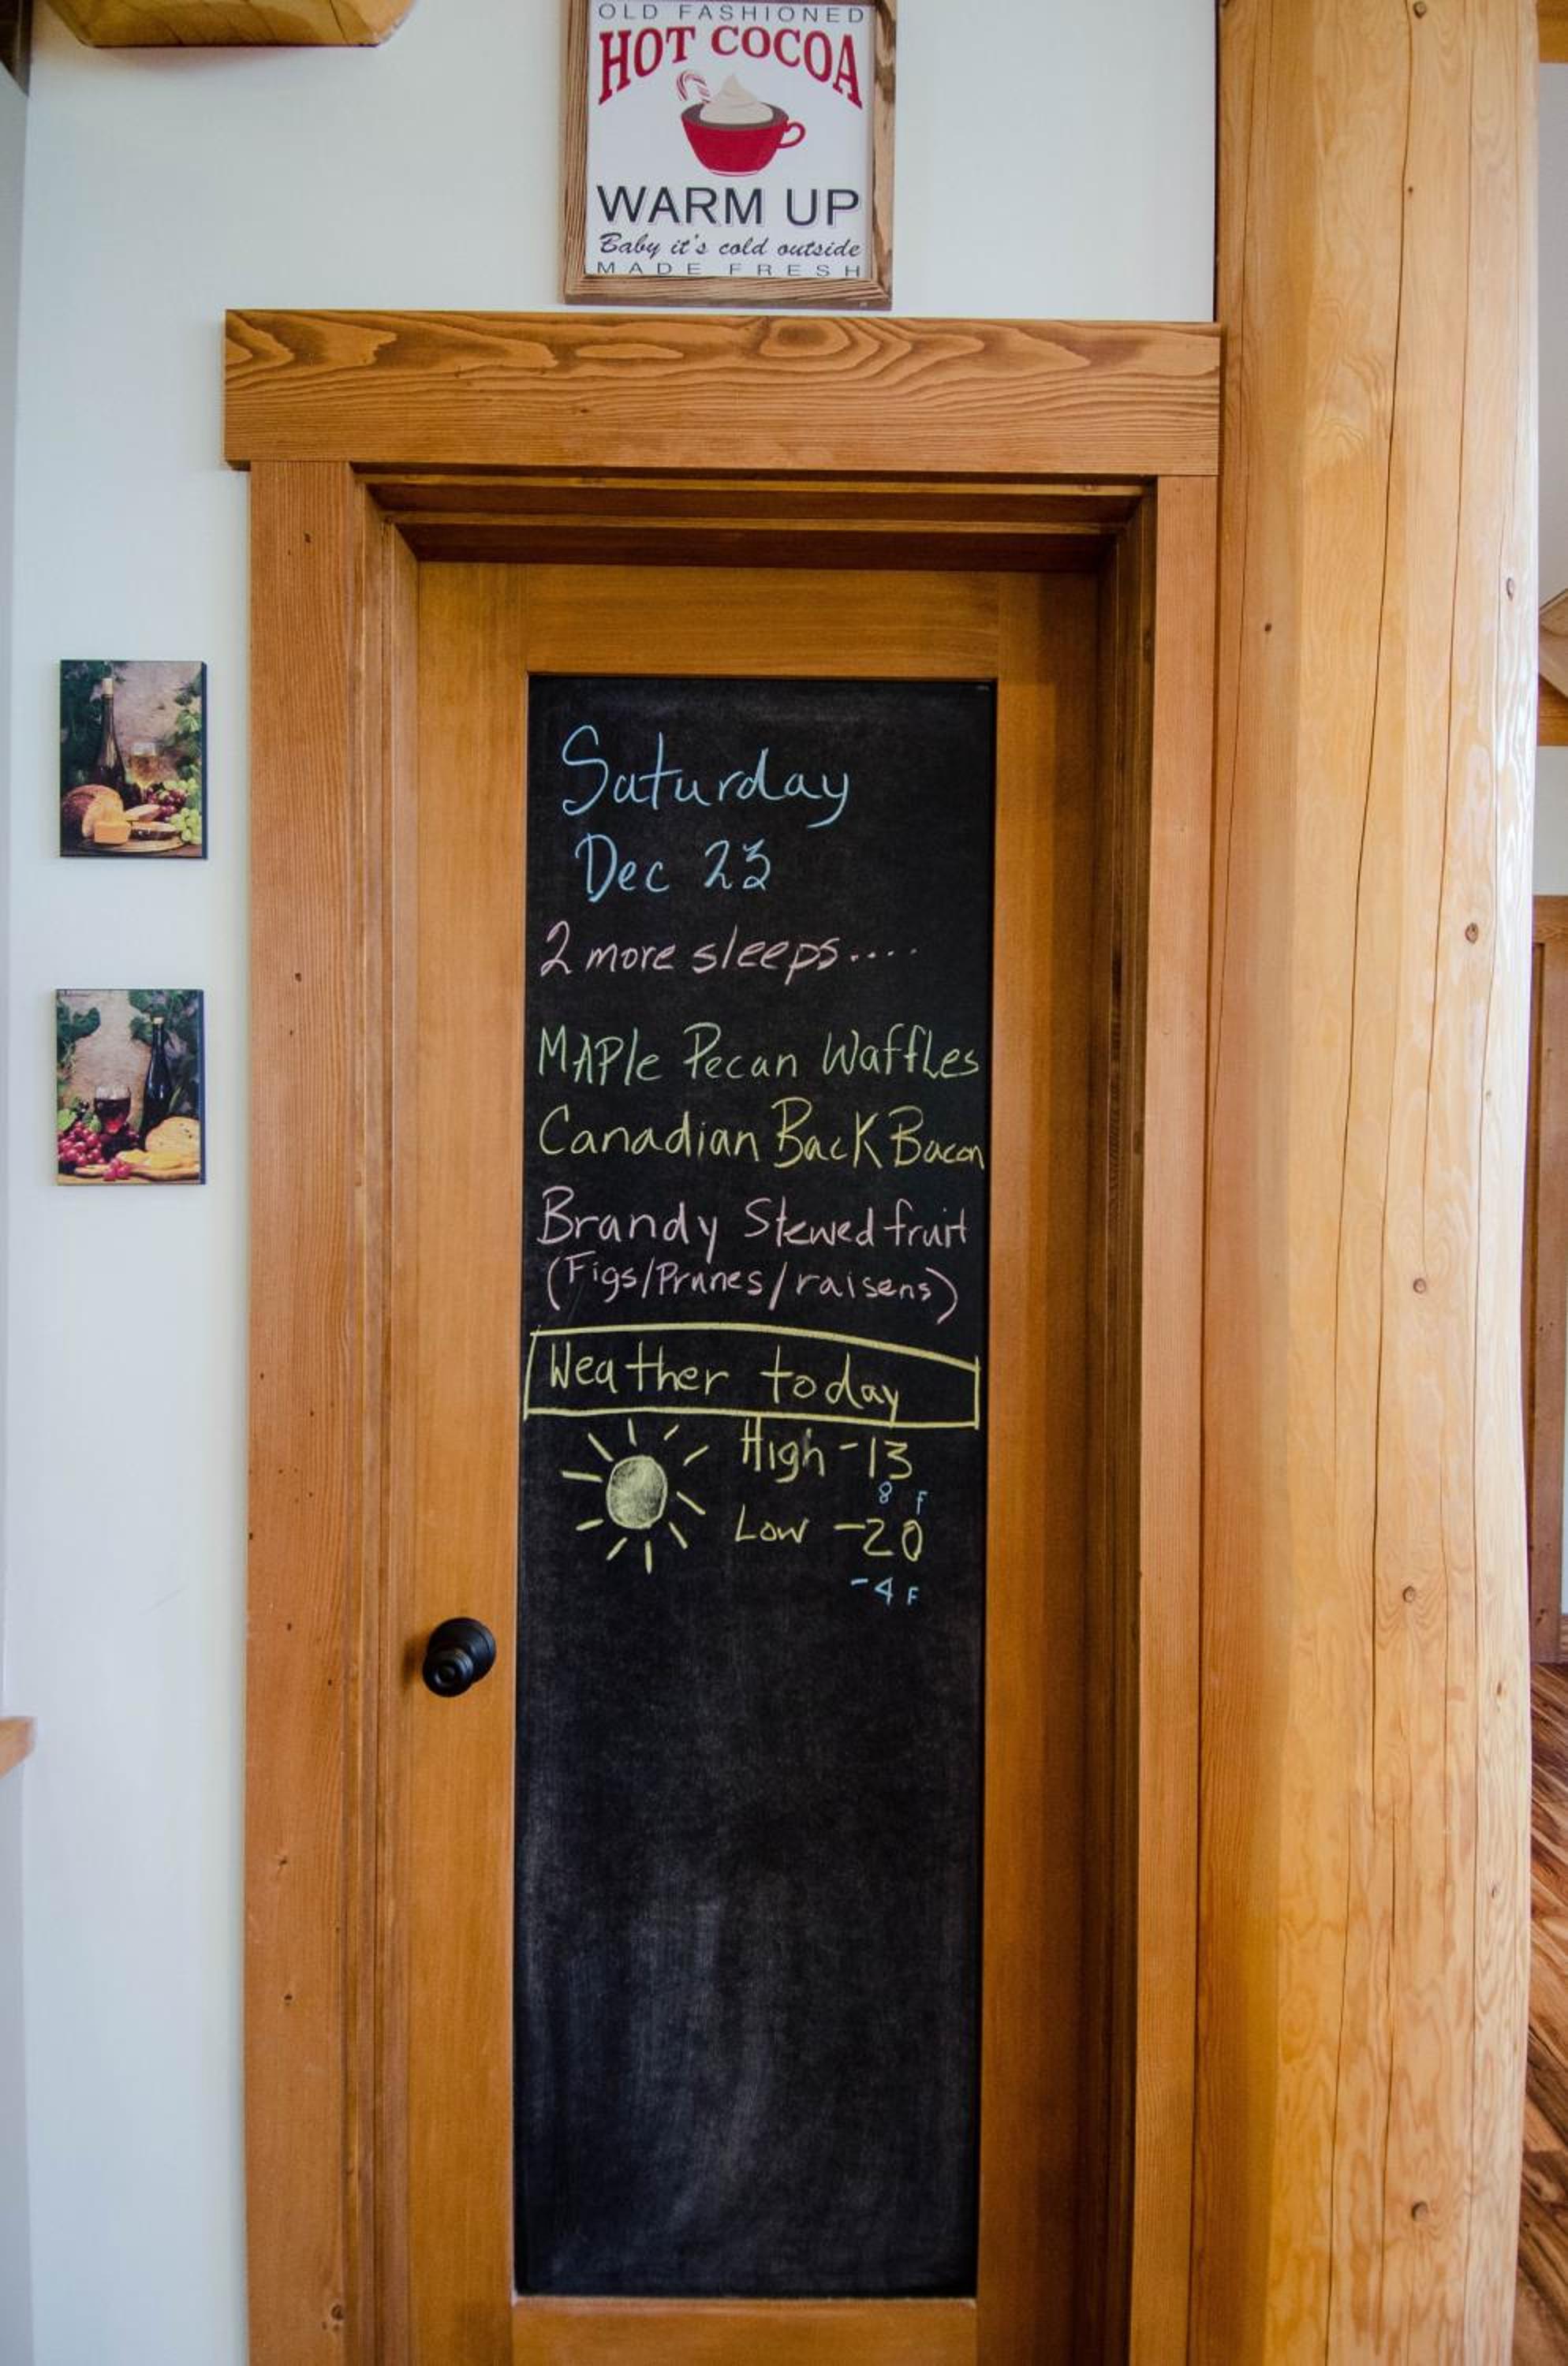 OLD FASHIONED
HOT COCOA
WARM UP
Baby it's cold outside
MADE FRESH
Saturday
Dec 23
2 more sleeps....
MAPle Pecan Waffles
Canadian Back Bacon
Brandy Stewed fruit
(Figs/Prunes/raisens)
Weather today
High -13
8 F
Low -20
-4 F